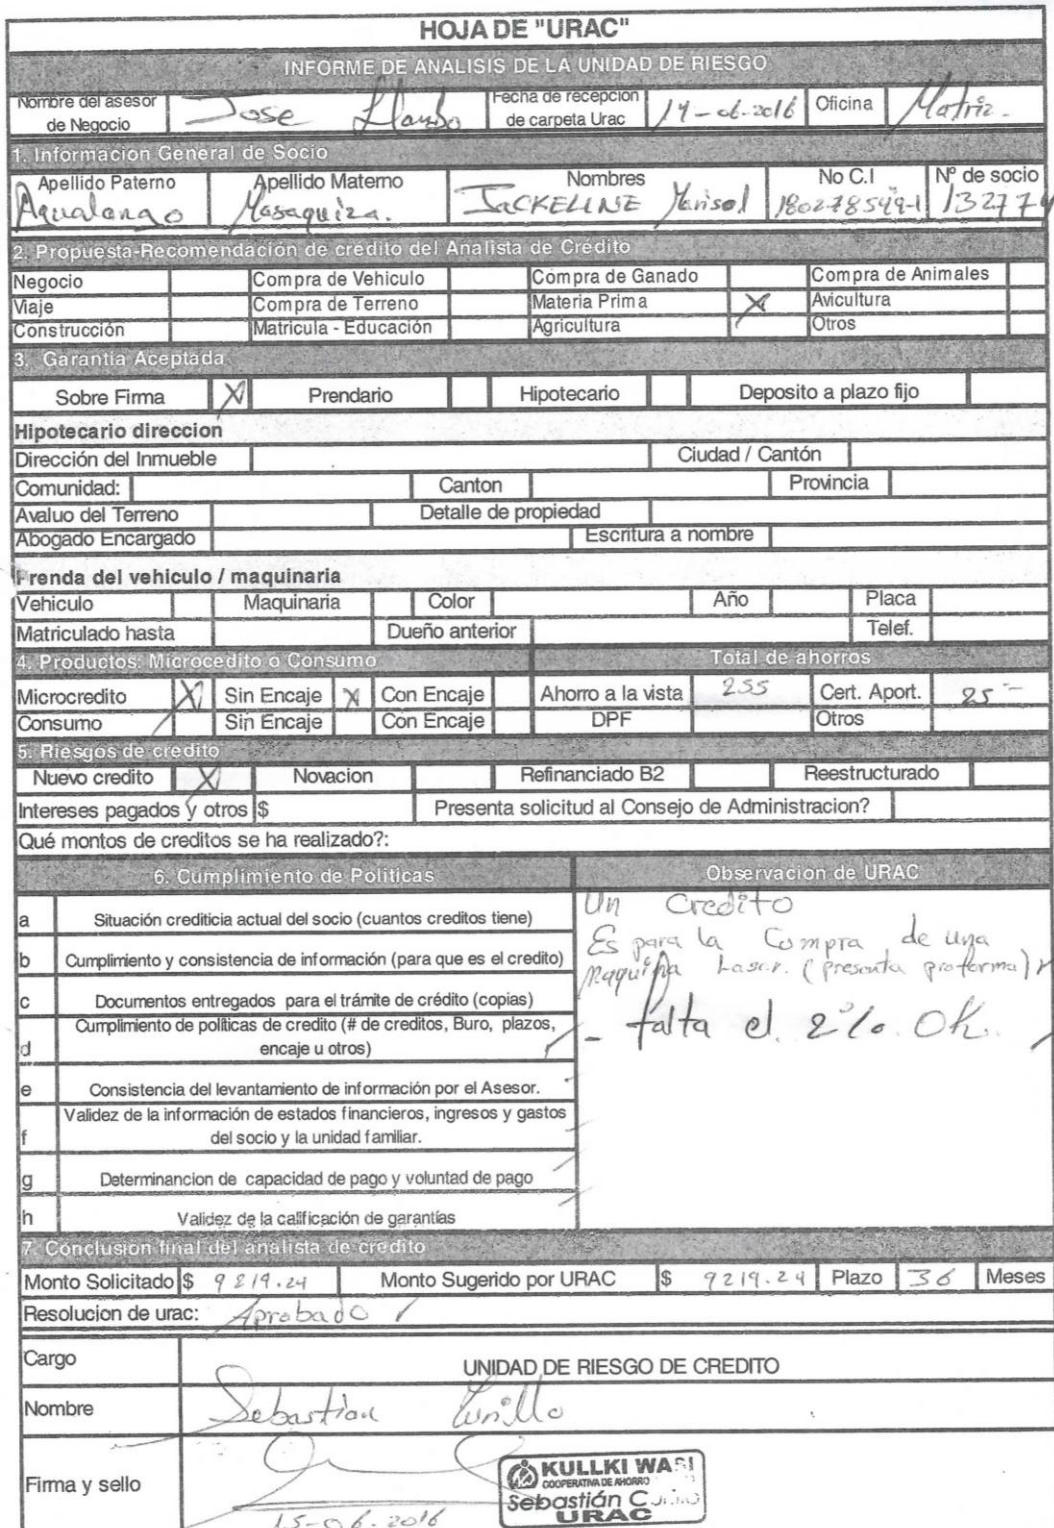 HOJA DE "URAC"
INFORME DE ANALISIS DE LA UNIDAD DE RIESGO
Nombre del asesor de Negocio Jose Fecha de recepcion de carpeta Urac 14-06-2016 Oficina Matriz
1. Informacion General de Socio
Apellido Paterno Apellido Materno Nombres No C.I Nº de socio
Masaquiza. JACKELINE Marisol
2. Propuesta-Recomendación de crédito del Analista de Crédito
Negocio Compra de Vehiculo Compra de Ganado Compra de Animales
Viaje Compra de Terreno Materia Prima X Avicultura
Construcción Matricula - Educación Agricultura Otros
3. Garantia Aceptada
Sobre Firma X Prendario Hipotecario Deposito a plazo fijo
Hipotecario direccion
Dirección del Inmueble Ciudad / Cantón
Comunidad: Canton Provincia
Avaluo del Terreno Detalle de propiedad
Abogado Encargado Escritura a nombre
Prenda del vehiculo / maquinaria
Vehiculo Maquinaria Color Año Placa
Matriculado hasta Dueño anterior Telef.
4. Productos: Microcedito o Consumo Total de ahorros
Microcredito X Sin Encaje X Con Encaje Ahorro a la vista 255 Cert. Aport. 25 -
Consumo Sin Encaje Con Encaje DPF Otros
5. Riesgos de credito
Nuevo credito X Novacion Refinanciado B2 Reestructurado
Intereses pagados y otros $ Presenta solicitud al Consejo de Administracion?
Qué montos de creditos se ha realizado?:
6. Cumplimiento de Politicas Observacion de URAC
a Situación crediticia actual del socio (cuantos creditos tiene) Un Credito
b Cumplimiento y consistencia de información (para que es el credito) Es para la Compra de una
Maquina Laser. (presenta proforma)
c Documentos entregados para el trámite de crédito (copias)
d Cumplimiento de políticas de credito (# de creditos, Buro, plazos, encaje u otros) - falta el 2% OK.
e Consistencia del levantamiento de información por el Asesor.
f Validez de la información de estados financieros, ingresos y gastos del socio y la unidad familiar.
g Determinancion de capacidad de pago y voluntad de pago
h Validez de la calificación de garantías
7. Conclusion final del analista de credito
Monto Solicitado $ 9219.24 Monto Sugerido por URAC $ 9219.24 Plazo 36 Meses
Resolucion de urac: Aprobado
Cargo UNIDAD DE RIESGO DE CREDITO
Nombre Sebastian
Firma y sello
KULLKI WASI
COOPERATIVA DE AHORRO
Sebastián
URAC
15-06-2016